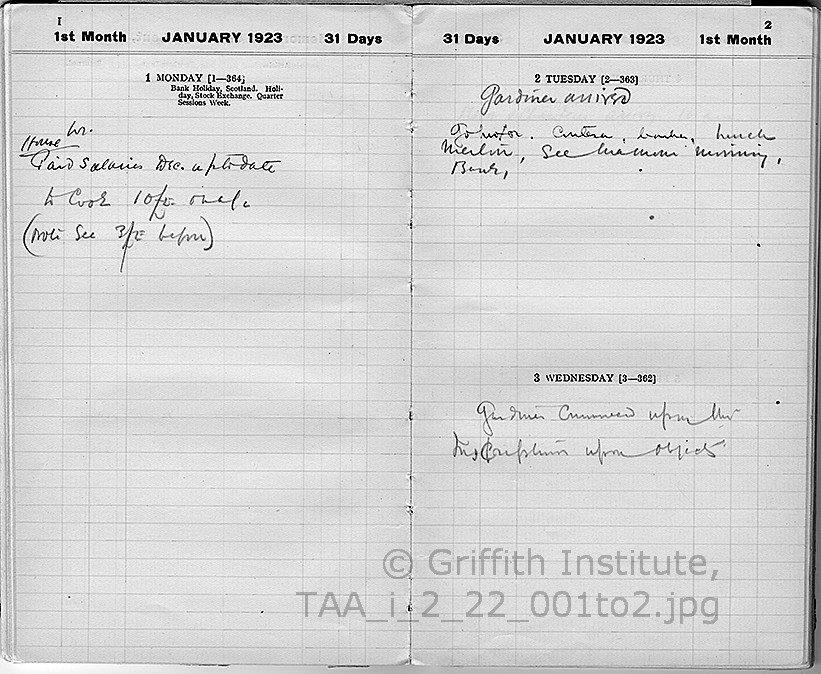 1
1st Month JANUARY 1923 31 Days
1 MONDAY [1—364]
Bank Holiday, Scotland. Holi-
day, Stock Exchange. Quarter
Sessions Week.
House
Paid salaries Dec. up to date
to Cook 10/-
(Note See 3/ before)
2
31 Days JANUARY 1923 1st Month
2 TUESDAY [2—363]
Gardiner arrived
Luxor. Lunch
Merton, See morning,
Bank,
3 WEDNESDAY [3—362]
Gardiner Commenced upon the
Inscriptions upon objects
© Griffith Institute,
TAA_i_2_22_001to2.jpg